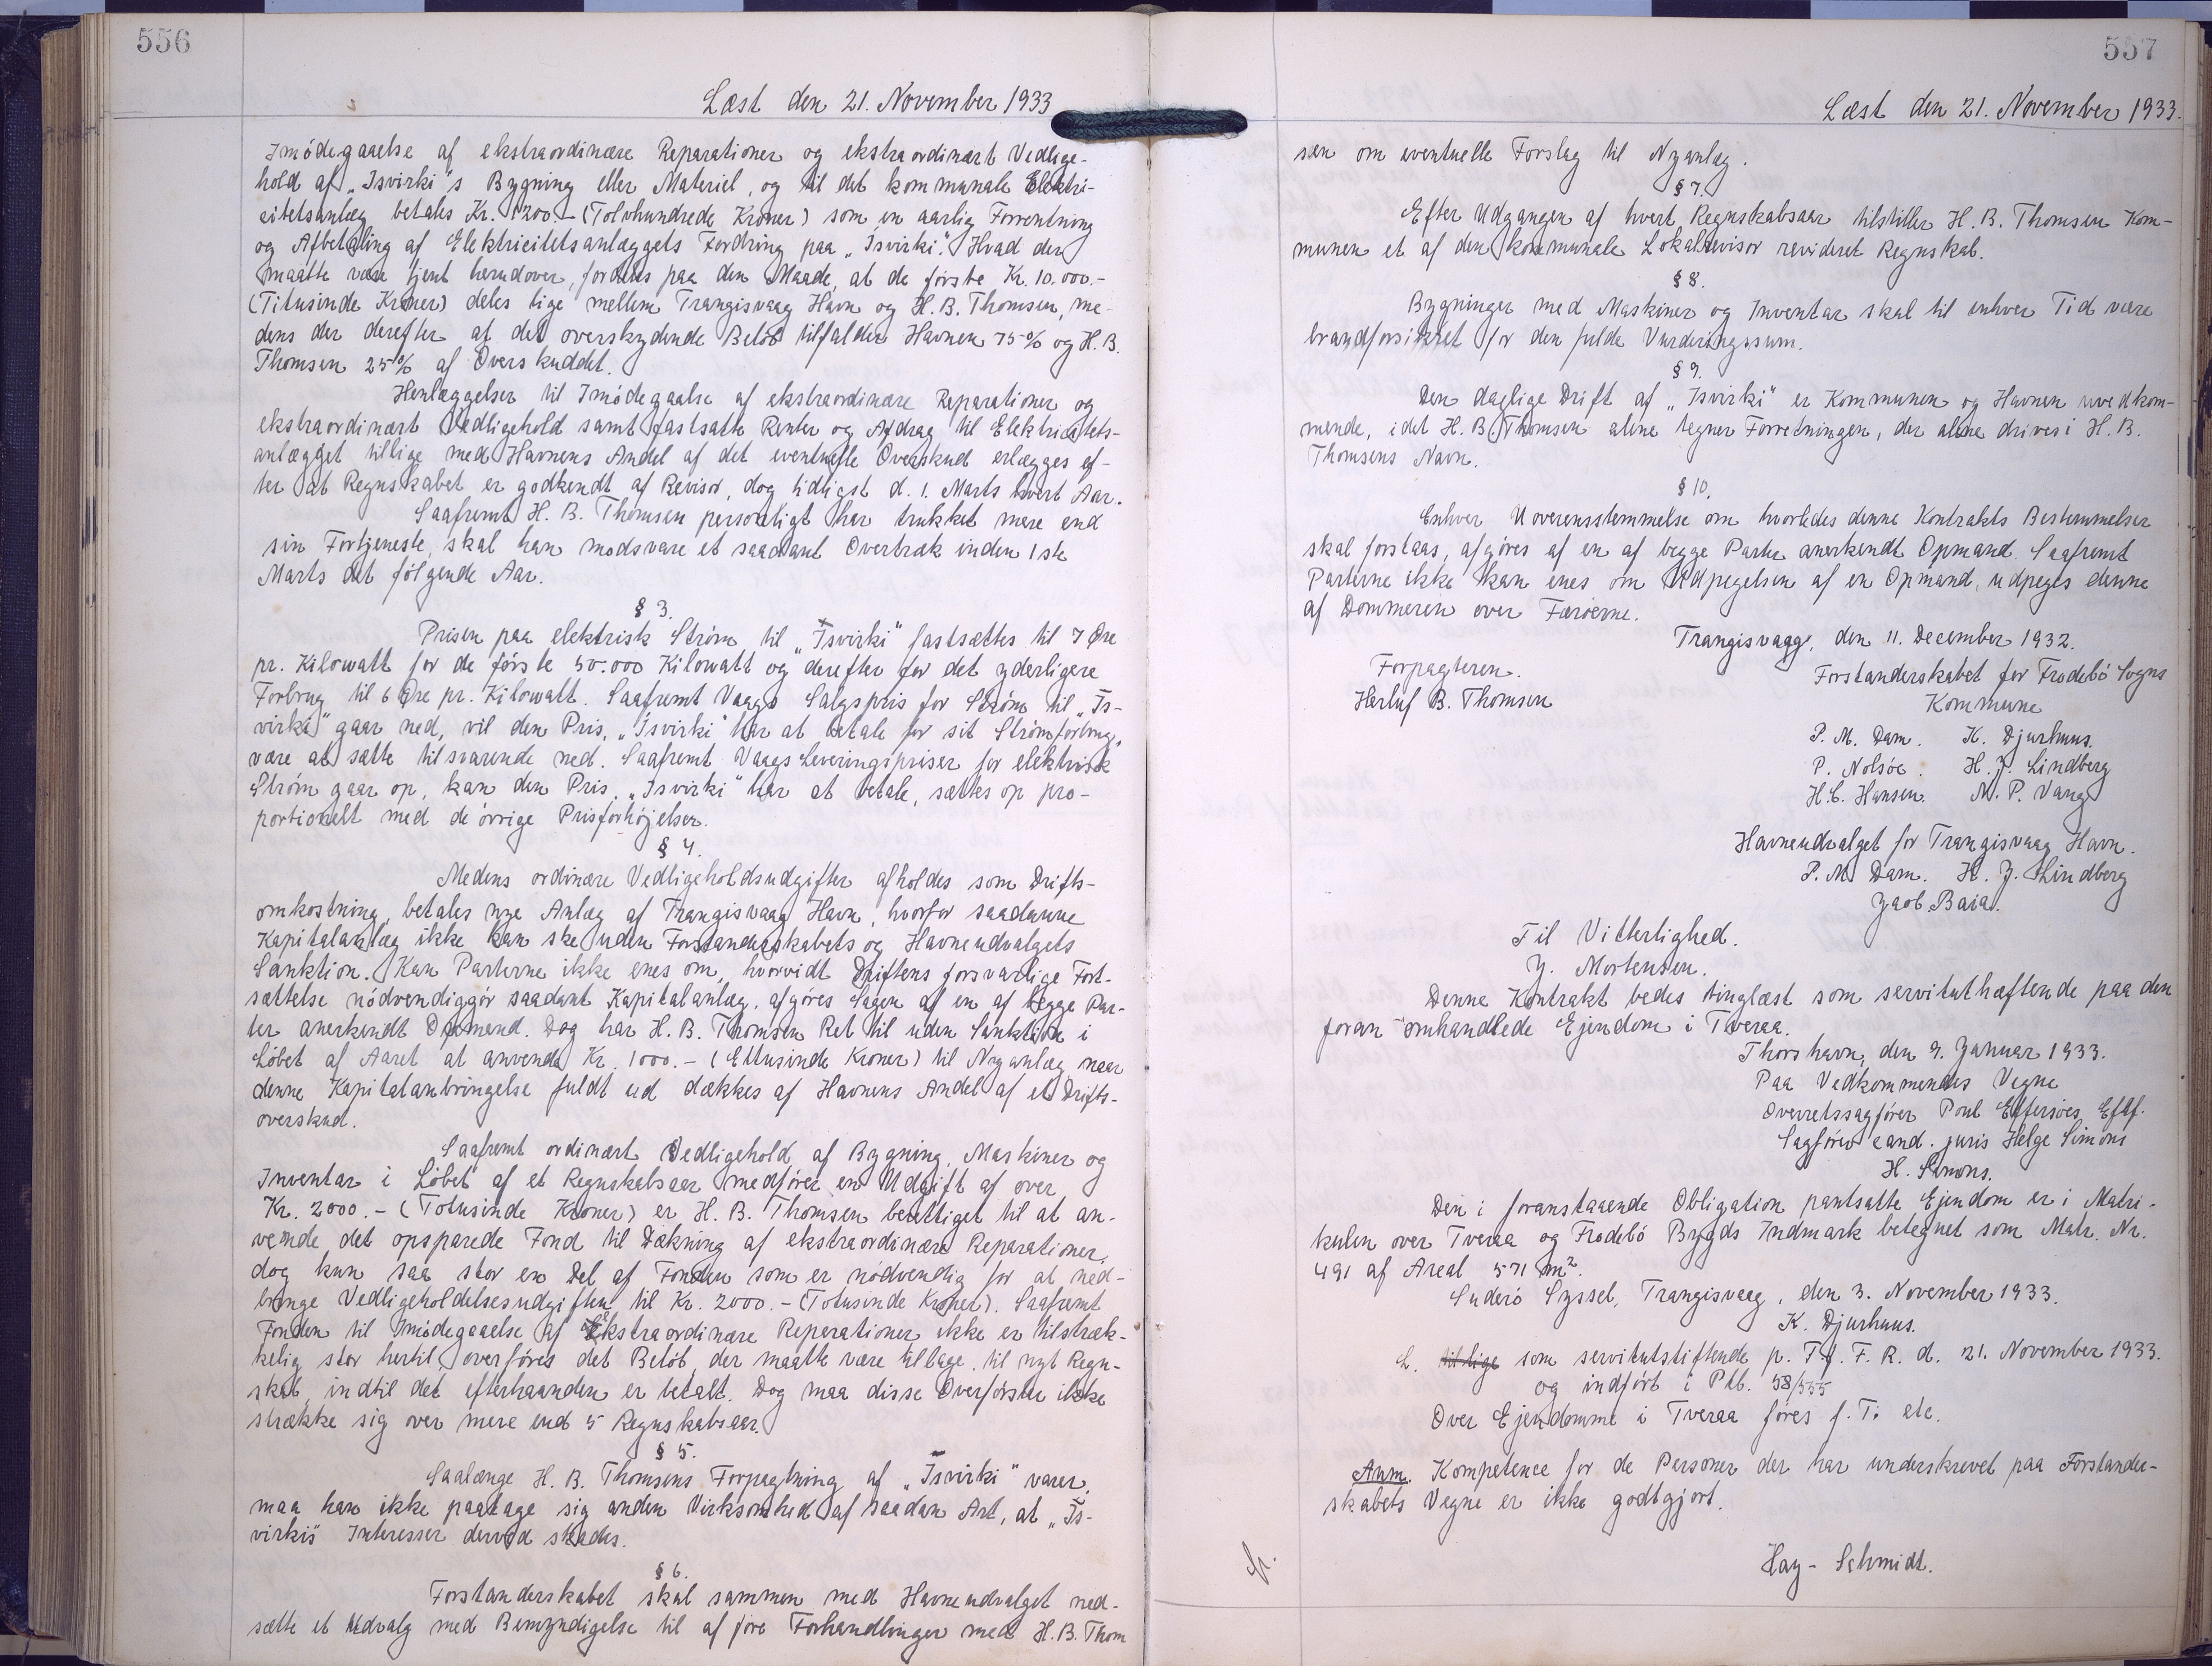 556
Læst den 21. November 1933
Imødegaaelse af ekstraordinære Reparationer og ekstraordinært Vedlige-
hold af „Isvirki“s Bygning eller Materiel, og til det kommunale Elektri-
citetsanlæg betales Kr. 1200.- (Tolvhundrede Kroner) som en aarlig Forrentning
og Afbetaling af Elektricitetsanlæggets Fordring paa „Isvirki“. Hvad der
maatte være tjent herudover, fordeles paa den Maade, at de første Kr. 10.000.-
(Titusinde Kroner) deles lige mellem Trangisvaag Havn og H. B. Thomsen, me-
dens der derefter af det overskydende Beløb tilfalder Havnen 75% og H. B.
Thomsen 25% af Overskuddet.
Henlæggelser til Imødegaalse af ekstraordinære Reparationer og
ekstraordinært Vedligehold samt fastsatte Renter og Afdrag til Elektricitets-
anlægget tillige med Havnens Andel af det eventuelle Overskud erlægges ef-
ter at Regnskabet er godkendt af Revisor, dog tidligst d. 1. Marts hvert Aar.
Saafremt H. B. Thomsen personligt har trukket mere end
sin Fortjeneste, skal han modsvare et saadant Overtræk inden 1ste
Marts det følgende Aar.
§ 3.
Prisen paa elektrisk Strøm til „Isvirki“ fastsættes til 7 Øre
pr. Kilowatt for de første 50.000 Kilowatt og derefter for det yderligere
Forbrug til 6 Øre pr. Kilowatt. Saafremt Vaags Salgspris for Strøm til „Is-
virki“ gaar ned, vil den Pris, „Isvirki“ har at betale for sit Strømforbrug,
være at sætte tilsvarende ned. Saafremt Vaags Leveringspriser for elektrisk
Strøm gaar op, kan den Pris, „Isvirki“ har at betale, sættes op pro-
portionelt med de øvrige Prisforhøjelser.
§ 4.
Medens ordinære Vedligeholdsudgifter afholdes som Drifts-
omkostning, betales nye Anlæg af Trangisvaag Havn, hvorfor saadanne
Kapitalanlæg ikke kan ske uden Forstanderskabets og Havneudvalgets
Sanktion. Kan Parterne ikke enes om, hvorvidt Driftens forsvarlige Fort-
sættelse nødvendiggør saadant Kapitalanlæg, afgøres Sagen af en af begge Par-
ter anerkendt Opmand. Dog har H. B. Thomsen Ret til uden Sanktion i
Løbet af Aaret at anvende Kr. 1000.- (Ettusinde Kroner) til Nyanlæg, naar
denne Kapitalanbringelse fuldt ud dækkes af Havnens Andel af et Drifts-
overskud.
Saafremt ordinært Vedligehold af Bygning, Maskiner og
Inventar i Løbet af et Regnskabsaar medfører en Udgift af over
Kr. 2000.- (Totusinde Kroner) er H. B. Thomsen berettiget til at an-
vende det opsparede Fond til Dækning af ekstraordinære Reparationer,
dog kun saa stor en Del af Fonden som er nødvendig for at ned-
bringe Vedligeholdelsesudgiften til Kr. 2000.- (Totusinde Kroner). Saafremt
Fonden til Imødegaaelse af Ekstraordinære Reparationer ikke er tilstræk-
kelig stor hertil, overføres det Beløb, der maatte være tilbage, til nyt Regn-
skab, indtil det efterhaanden er betalt. Dog maa disse Overførsler ikke
strække sig over mere end 5 Regnskabsaar.
§ 5.
Saalænge H. B. Thomsens Forpagtning af „Isvirki“ varer,
maa han ikke paatage sig anden Virksomhed af saadan Art, at „Is-
virkis“ Interesser derved skades.
§ 6.
Forstanderskabet skal sammen med Havneudvalget ned-
sætte et Udvalg med Bemyndigelse til at føre Forhandlinger med H. B. Thom
557
Læst den 21. November 1933.
sen om eventuelle Forslag til Nyanlæg.
§ 7.
Efter Udgangen af hvert Regnskabsaar tilstiller H. B. Thomsen Kom-
munen et af den kommunale Lokalrevisor revideret Regnskab.
§ 8.
Bygninger med Maskiner og Inventar skal til enhver Tid være
brandforsikret for den fulde Vurderingssum.
§ 9.
Den daglige Drift af „Isvirki“ er Kommunen og Havnen uvedkom-
mende, idet H. B. Thomsen alene tegner Forretningen, der alene drives i H. B.
Thomsens Navn.
§ 10.
Enhver Uoverensstemmelse om hvorledes denne Kontrakts Bestemmelser
skal forstaas, afgøres af en af begge Parter anerkendt Opmand. Saafremt
Parterne ikke kan enes om Udpegelsen af en Opmand, udpeges denne
af Dommeren over Færøerne.
Trangisvaag, den 11. December 1932.
Forpagteren.
Herluf B. Thomsen
Forstanderskabet for Frodebø Sogns
Kommune
P. M. Dam. K. Djurhuus.
P. Nolsøe. H. J. Lindberg
H. C. Hansen. M. P. Vang
Havneudvalget for Trangisvaag Havn.
P. M. Dam. H. J. Lindberg
Jacob Baia.
Til Vitterlighed.
J. Mortensen.
Denne Kontrakt bedes tinglæst som servituthæftende paa den
foran omhandlede Ejendom i Tveraa.
Thorshavn, den 9. Januar 1933.
Paa Vedkommendes Vegne
Overretssagfører Poul Eftf.
Sagfører cand. juris Helge Simons
H. Simons.
Den i foranstaaende Obligation pantsatte Ejendom er i Matri-
kulen over Tveraa og Frodebø Bygds Indmark betegnet som Matr. Nr.
491 af Areal 571 m².
Suderø Syssel, Trangisvaag, den 3. November 1933.
K. Djurhuus.
L. tillige som servitutstiftende p. T. f. F. R. d. 21. November 1933.
og indført i Ptb. 58/555
Over Ejendomme i Tveraa føres f. T. etc.
Anm. Kompetence for de Personer der har underskrevet paa Forstander-
skabets Vegne er ikke godtgjort.
Hay-Schmidt.